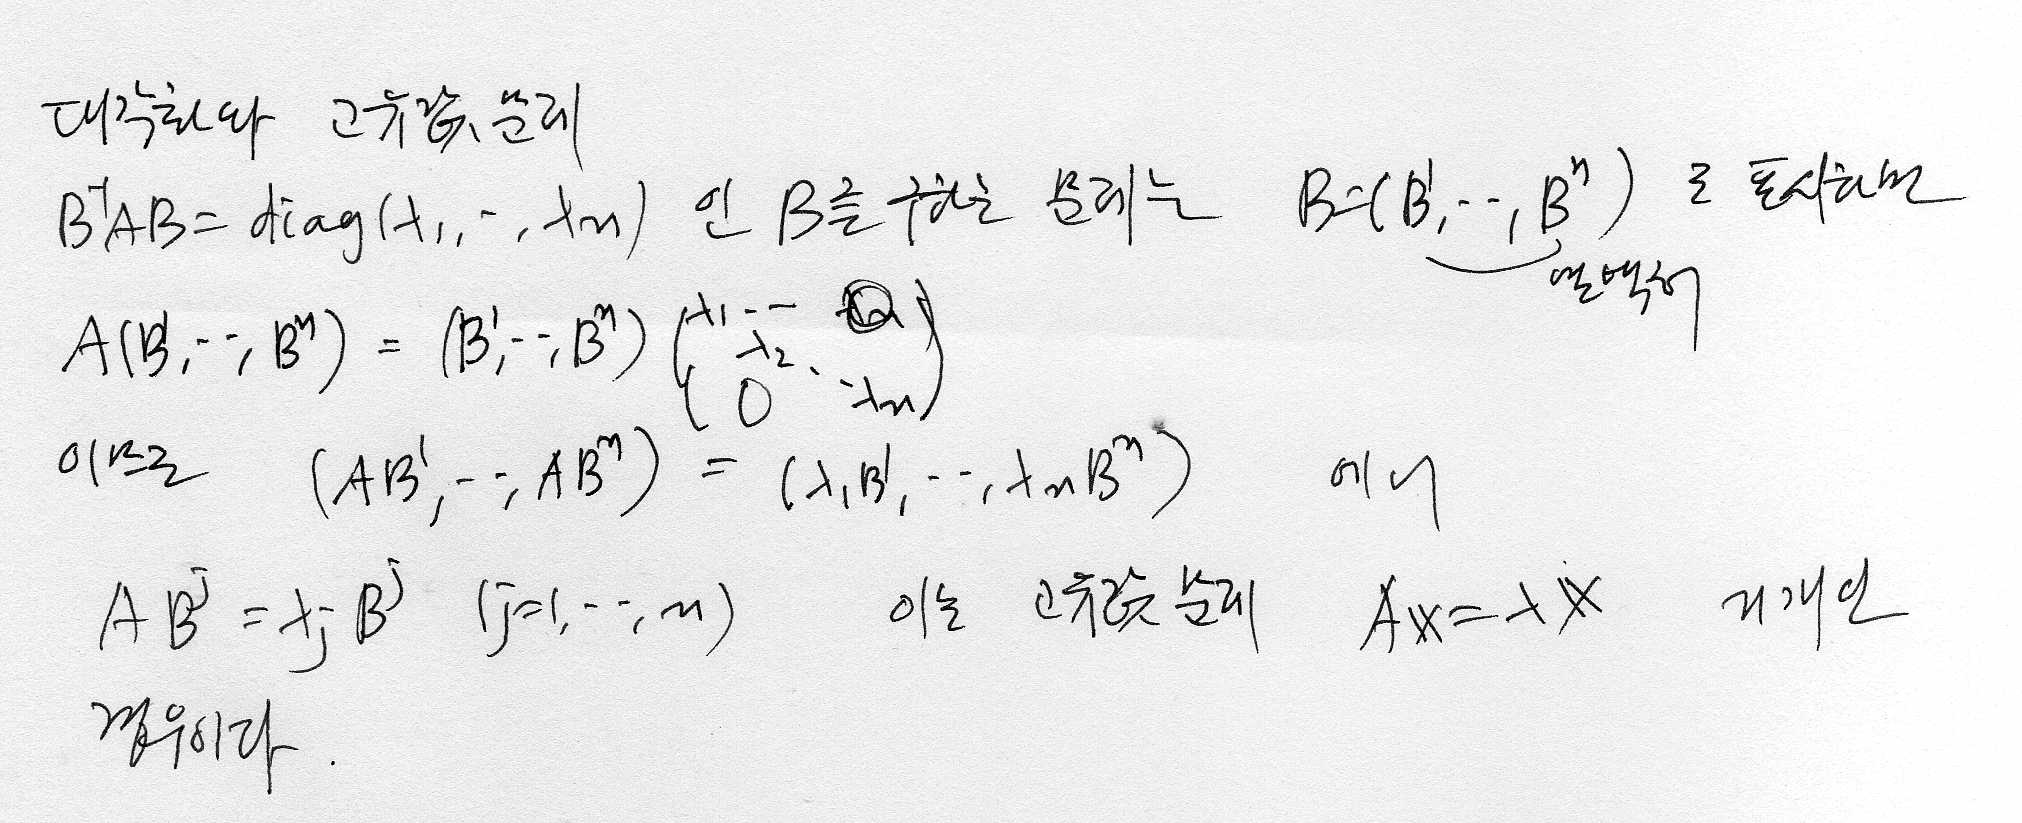 대각화와 고유값 문제
B⁻¹AB = diag(λ₁, ‥, λn) 인 B를 구하는 문제는 B=(B¹, ‥, Bⁿ) 로 표시하면
열벡터
A(B¹, ‥, Bⁿ) = (B¹, ‥, Bⁿ) (λ₁ ‥ 0 λ₂ ⋱ 0 λn)
이므로 (AB¹, ‥, ABⁿ) = (λ₁B¹, ‥, λnBⁿ) 에서
ABʲ = λⱼBʲ (j=1, ‥, n) 이는 고유값 문제 Ax = λx
경우이다.